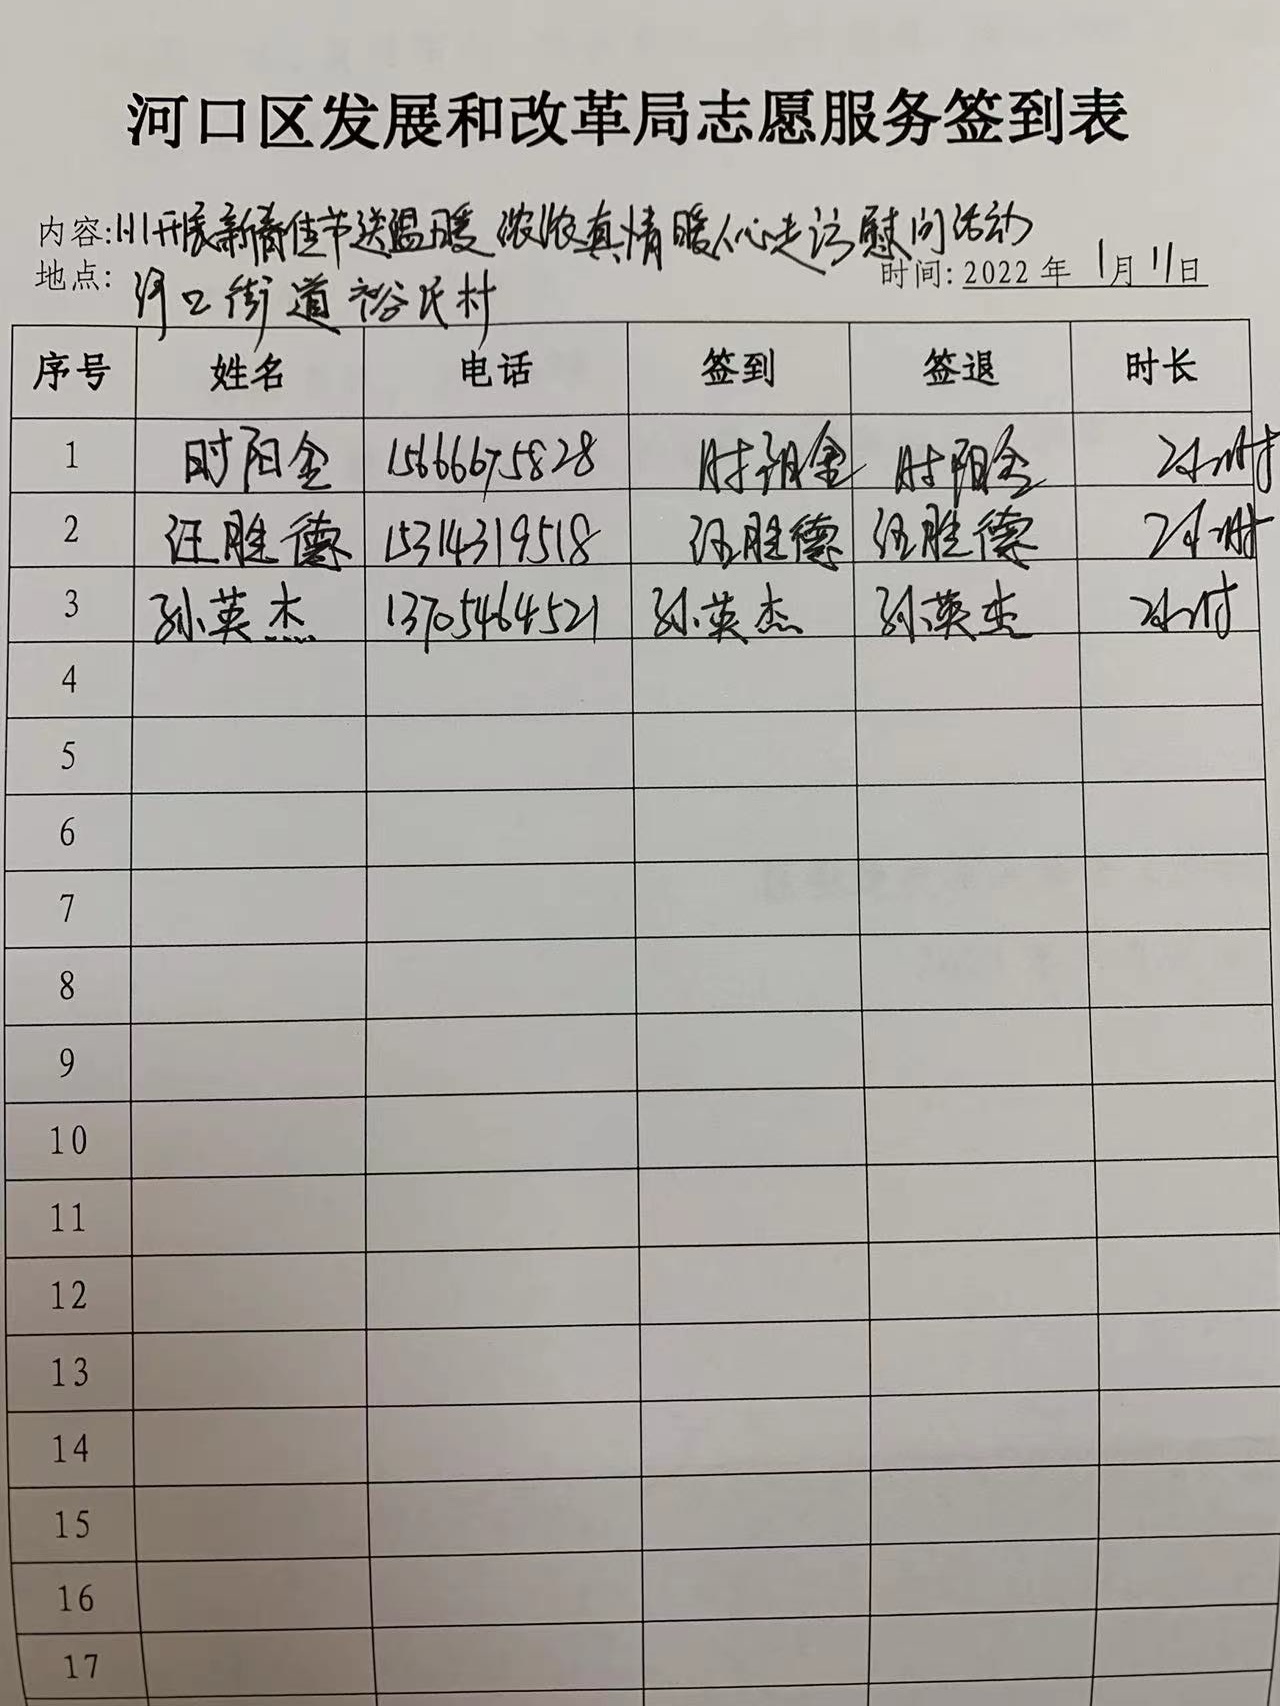 河口区发展和改革局志愿服务签到表
内容:开展新春佳节送温暖 浓浓真情暖人心走访慰问活动
地点: 河口街道裕民村 时间: 2022 年 1月 11日
序号 姓名 电话 签到 签退 时长
1 时阳金 15666675828 时阳金 时阳金 2小时
2 汪胜德 15314319518 汪胜德 汪胜德 2小时
3 孙英杰 13705464521 孙英杰 孙英杰 2小时
4
5
6
7
8
9
10
11
12
13
14
15
16
17